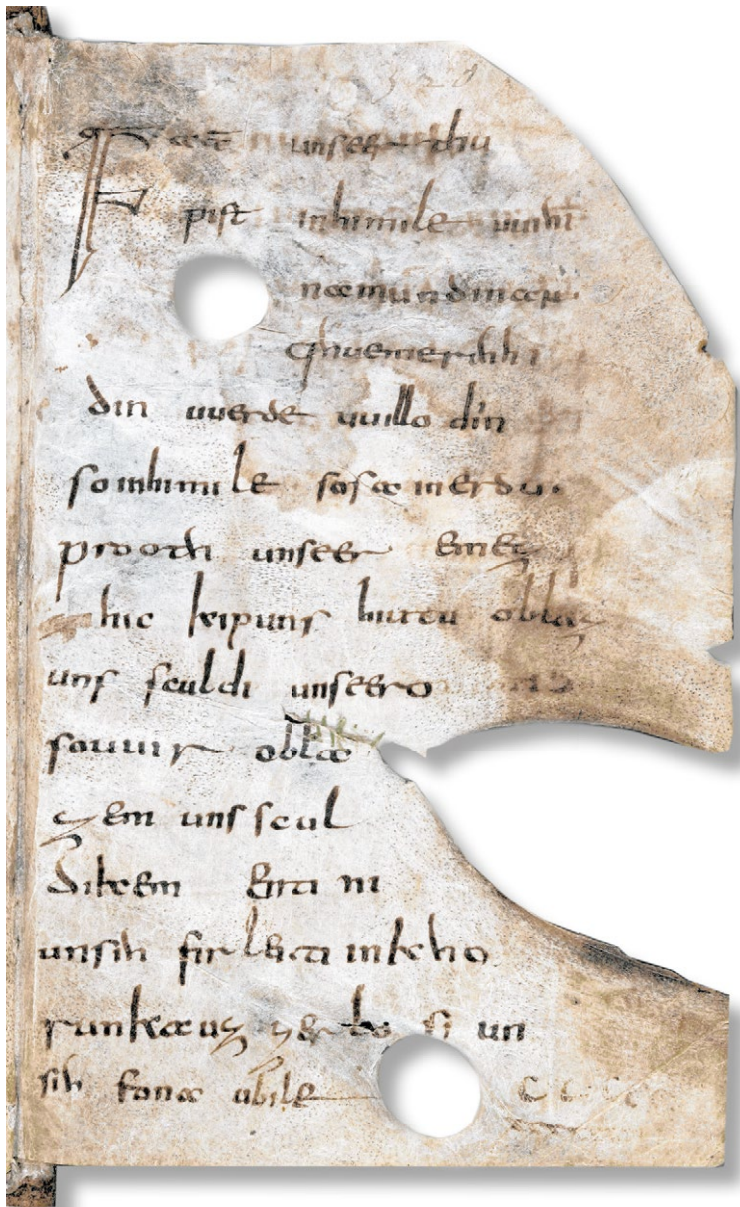 320
Fater unseer thu
pist inhimile uuihi
namun dinan
qhueme rihhi
din uuerde uuillo din
so inhimile sosa in erdu.
prooth unseer emez
zihic kip uns hiutu oblaz
uns sculdi unseero
so uuir obla
zem uns scul
dikem enti ni
unsih firleiti in kho
runka uz zer lo si un
sih fona ubile